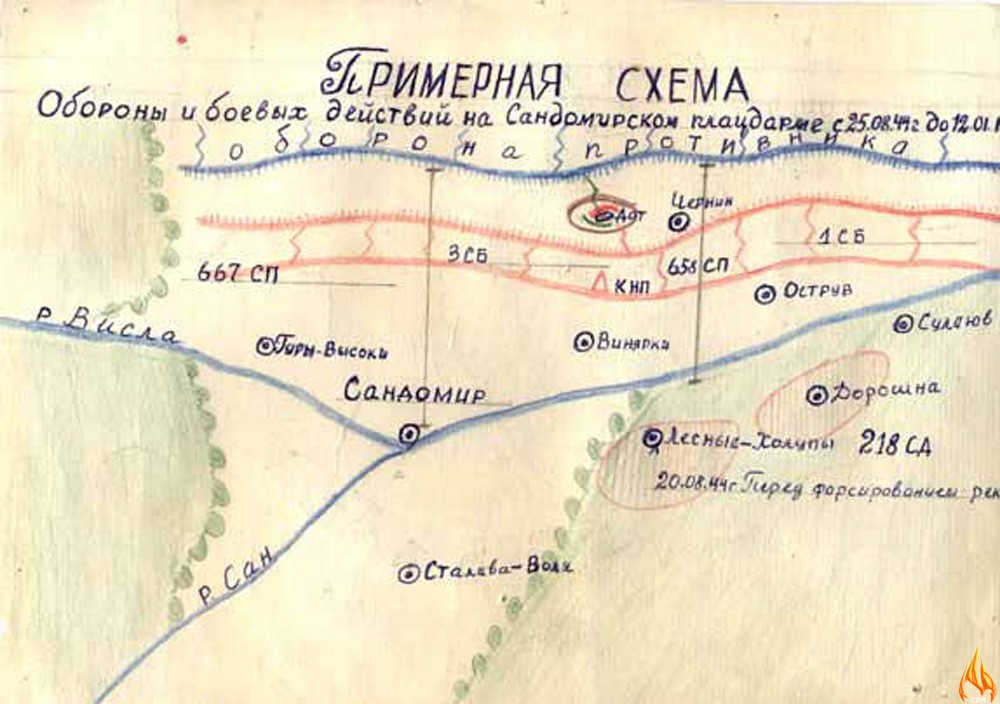 Примерная схема
Обороны и боевых действий на Сандомирском плацдарме с 25.08.44г до 12.01.
оборона противника
Дот
Чернин
1 СБ
3 СБ
658 СП
667 СП
КНП
Острув
р. Висла
Сулеюв
Гуры-Высоки
Винярки
Сандомир
Дорошна
Лесные-Холупы 218 СД
20.08.44г Перед форсированием рек
р. Сан
Сталива-Воля